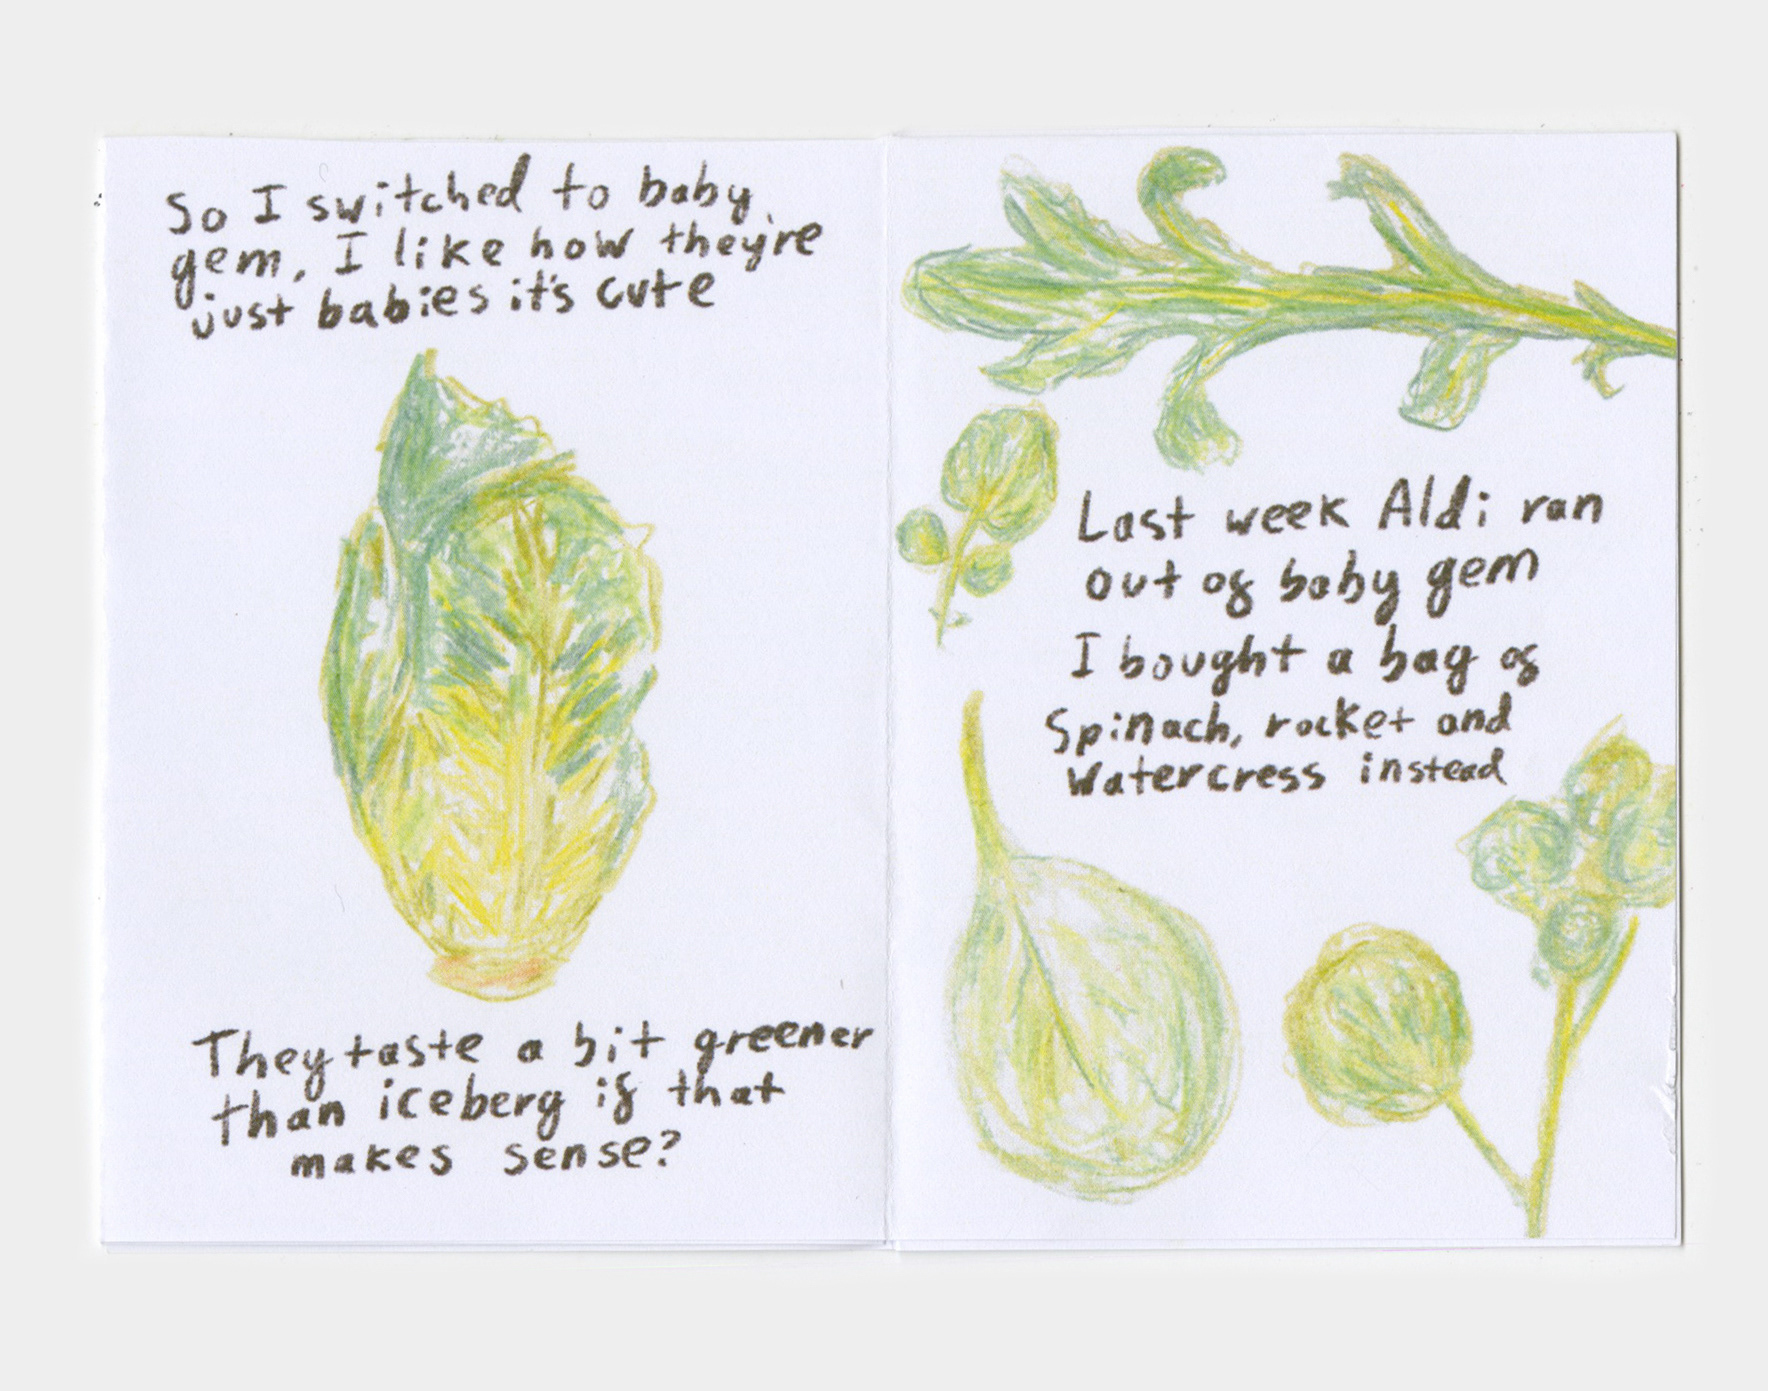 So I switched to baby
gem, I like how they're
just babies it's cute
They taste a bit greener
than iceberg if that
makes sense?
Last week Aldi ran
out of baby gem
I bought a bag of
Spinach, rocket and
watercress instead